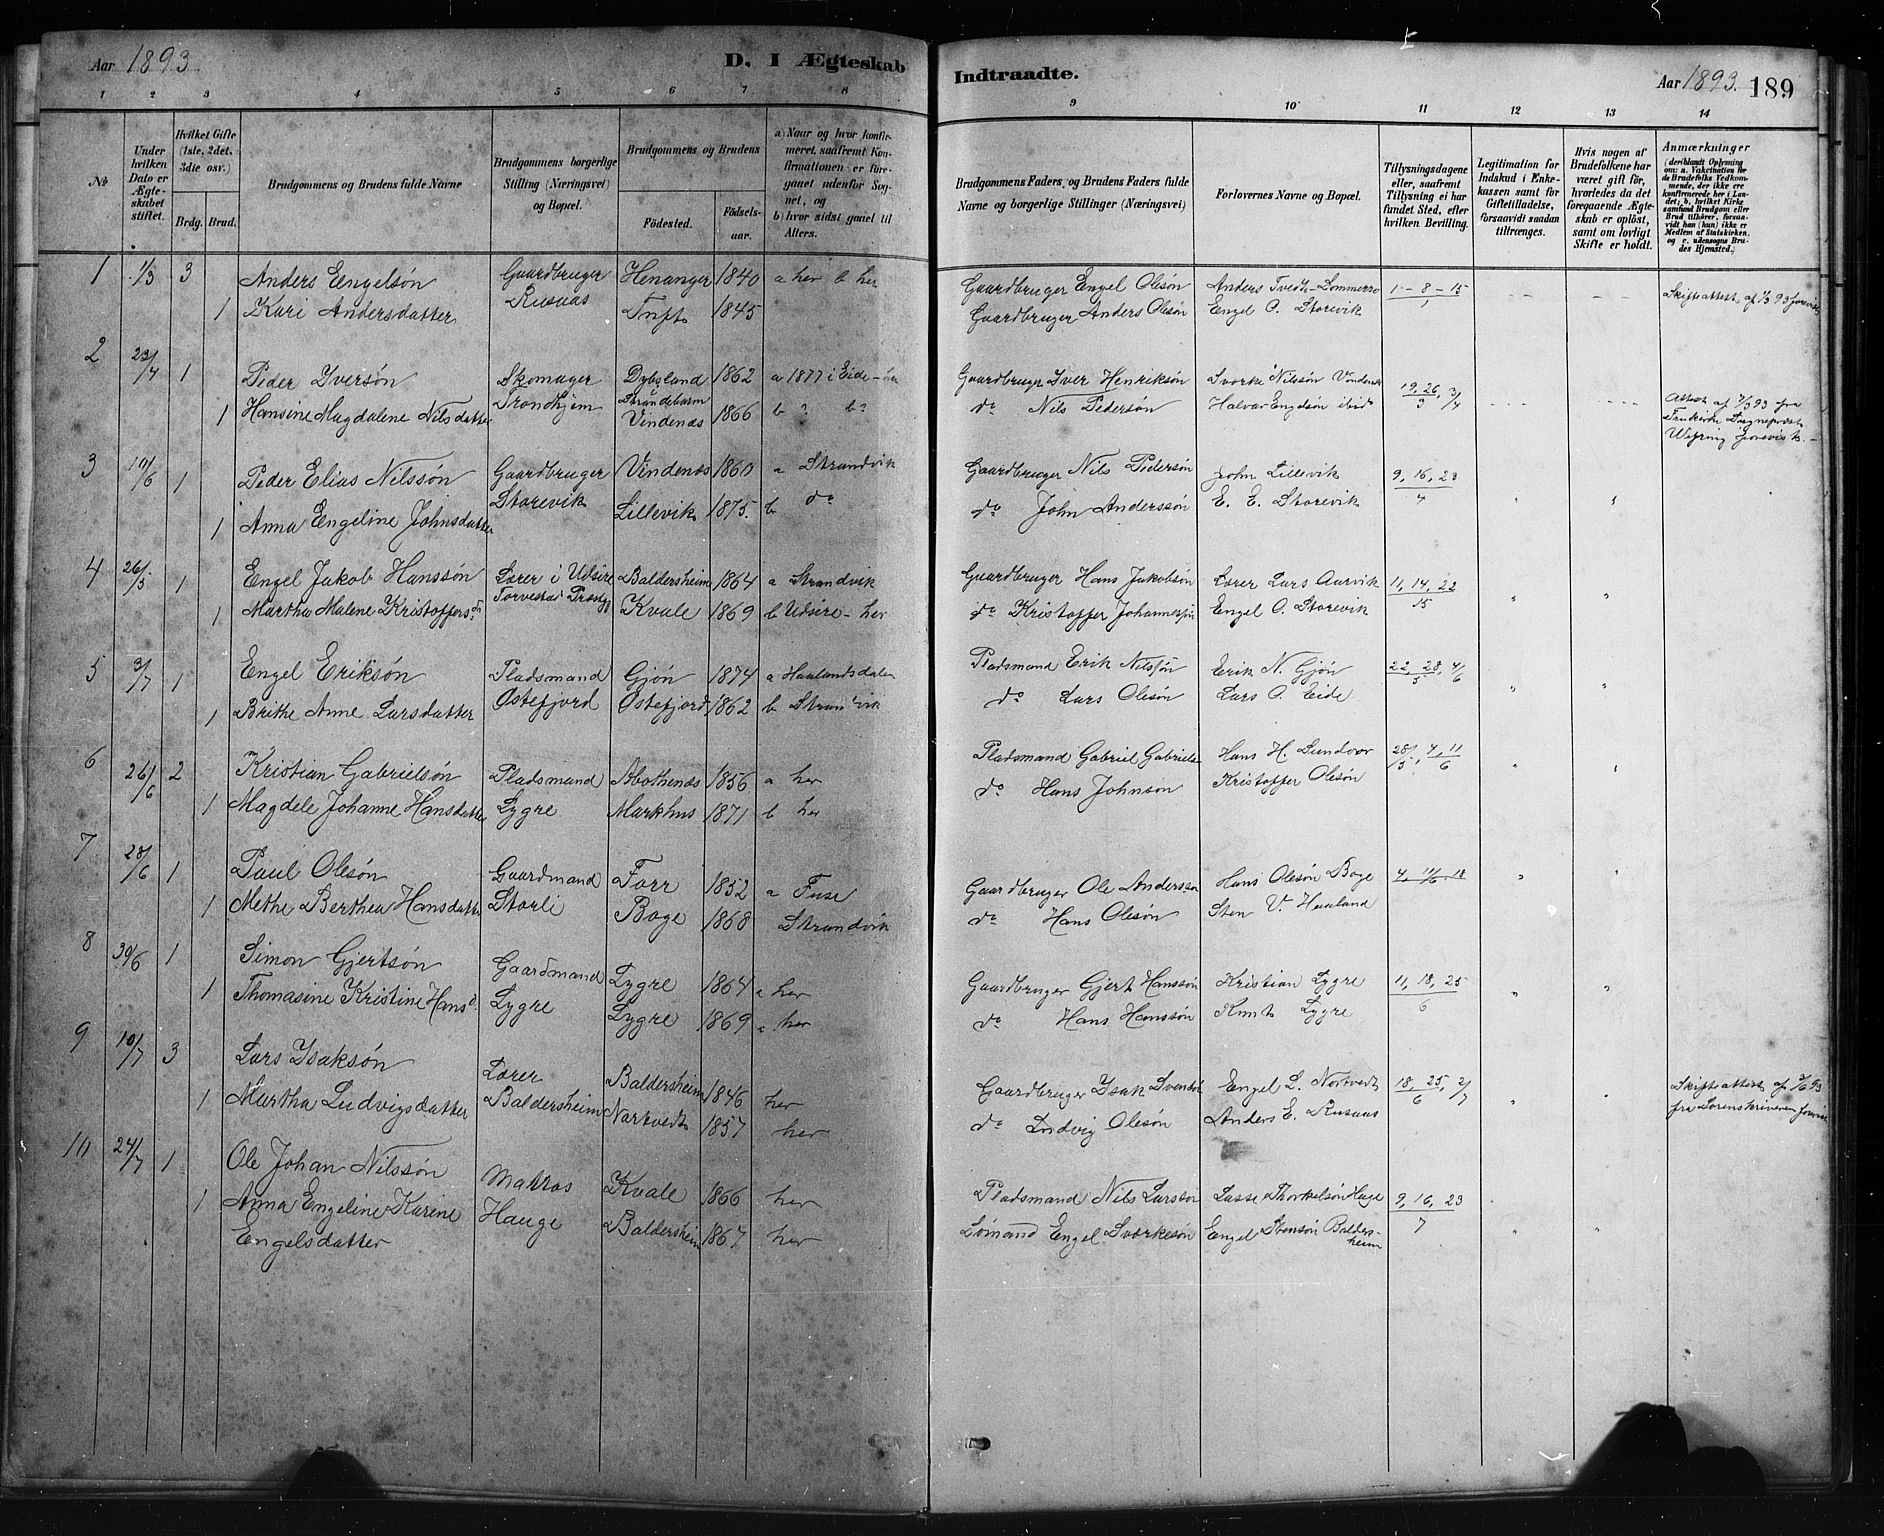 Aar 1893
D. I Ægteskab
Indtraadte.
Aar 1893. 189
1 2 3 4 5 6 7 8
9 10 11 12 13 14
№
Under hvilken Dato er Ægteskabet stiftet.
Hvilket Gifte (1ste, 2det, 3die osv.)
Brdg. Brud.
Brudgommens og Brudens fulde Navne
Brudgommens borgerlige Stilling (Næringsvei) og Bopæl.
Brudgommens og Brudens
Fødested. Fødselsaar.
a) Naar og hvor konfirmeret, saafremt Konfirmationen er foregaaet udenfor Sognet, og
b) hvor sidst gaaet til Alters.
Brudgommens Faders, og Brudens Faders fulde Navne og borgerlige Stillinger (Næringsvei)
Forlovernes Navne og Bopæl.
Tillysningsdagene eller, saafremt Tillysning ei har fundet Sted, efter hvilken Bevilling.
Legitimation for Indskud i Enkekassen samt for Giftetilladelse, forsaavidt saadan tiltrænges.
Hvis nogen af Brudefolkene har været gift før, hvorledes da det foregaaende Ægteskab er opløst, samt om lovligt Skifte er holdt.
Anmærkninger
(deriblandt Oplysning om: a. Vakcination for de Brudefolks Vedkommende, der ikke ere konfirmerede her i Landet; b. hvilket Kirkesamfund Brudgom eller Brud tilhører, forsaavidt han (hun) ikke er Medlem af Statskirken, og c. udensogns Brudes Hjemsted.
1 1/3 3 Anders Engelsøn Gaardbruger Henanger 1840 a her b her Gaardbruger Engel Olesøn Anders Tvedt 1 - 8 - 15 Skifteattest af 93
1 Kari Andersdatter Rusaas Tuft 1845 Gaardbruger Anders Olesøn Engel O. Storevik 1
2 23/4 1 Peder Iversøn Skomager Dybsland 1862 a 1877 i Eide Gaardbruger Iver Henriksøn Nilssøn 19, 26, 3/4
1 Hansine Magdalene Nilsdatter Trondhjem Strandebarm Vindenæs 1866 b do Nils Pedersøn Halvar Engelsøn ibid 3 Attest af 93 fra
3 10/6 1 Peder Elias Nilssøn Gaardbruger Vindenæs 1860 a Strandvik Gaardbruger Nils Pedersøn John Lillevik 9, 16, 23
1 Anna Engeline Johnsdatter Storevik Lillevik 1875. b do do John Anderssøn E. E. Storevik 4
4 26/5 1 Engel Jakob Hanssøn Lærer i Udsire Baldersheim 1864 a Strandvik Gaardbruger Hans Jakobsøn Lærer Lars Aarvik 11, 14, 22
1 Martha Malene Kristoffersd. Torvestad Kvale 1869 b Udsire - her do Kristoffer Johannessøn Engel O. Storevik
5 3/7 1 Engel Eriksøn Pladsmand Gjøn 1874 a Haalandsdalen Pladsmand Erik Nilssøn Erik N. Gjøn 22, 28, 4/6
1 Brithe Anne Larsdatter Østefjord Østefjord 1862 b Strandvik do Lars Olesøn Lars O. Eide 5
6 26/6 2 Kristian Gabrielsøn Pladsmand 1856 a her Pladsmand Gabriel Hans H. Sundvor 28/5, 4, 11
1 Magdele Johanne Hansdatter Lygre Markhus 1871 b her do Hans Johnsøn Kristoffer Olesøn 6
7 28/6 1 Paul Olesøn Gaardmand 1852 a Fuse Gaardbruger Ole Anderssøn Hans Olesøn Boge 4, 11/6, 18
1 Methe Berthea Hansdatter Storli Boge 1868 Strandvik do Hans Olesøn Sten V. Haaland
8 30/6 1 Simon Gjertsøn Gaardmand Lygre 1864 a her Gaardbruger Gjert Hanssøn Kristian Lygre 11, 18, 25
1 Thomasine Kristine Hansd. Lygre Lygre 1869 a her do Hans Hanssøn Knut Lygre 6
9 10/7 3 Lars Isaksøn Lærer Baldersheim 1846 her Gaardbruger Isak Svensøn Engel L. Nortvedt 18, 25, 2/7 Skifteattest af 93
1 Martha Ludvigsdatter Baldersheim Nortvedt 1857 her do Ludvig Olesøn Anders E. Rusaas 6 fra Sorenskriveren
10 24/7 1 Ole Johan Nilssøn Matros Kvale 1866 her Pladsmand Nils Larssøn Lasse Thorkelsøn Hauge 9, 16, 23
1 Anna Engeline Karine Hauge Baldersheim 1867 her Engel Engel Stensøn Baldersheim 7
Engelsdatter